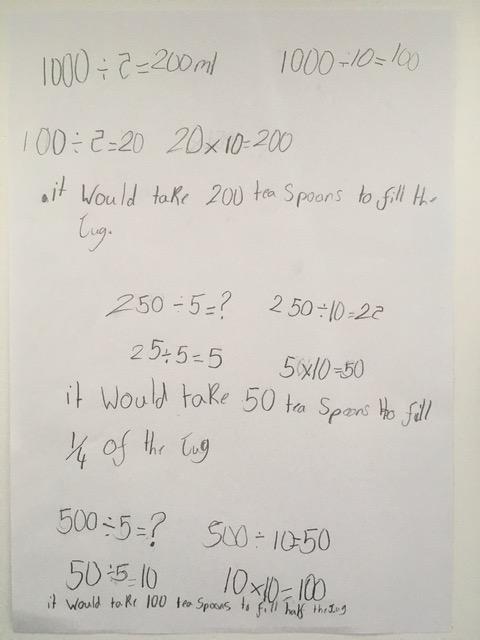 1000 ÷ 5 = 200ml 1000 ÷ 10 = 100
100 ÷ 5 = 20 20 x 10 = 200
.it would take 200 tea spoons to fill the
Jug.
250 ÷ 5 = ? 250 ÷ 10 = 25
25 ÷ 5 = 5 5 x 10 = 50
it would take 50 tea spoons to fill
1/4 of the Jug
500 ÷ 5 = ? 500 ÷ 10 = 50
50 ÷ 5 = 10 10 x 10 = 100
it would take 100 tea spoons to fill half the Jug